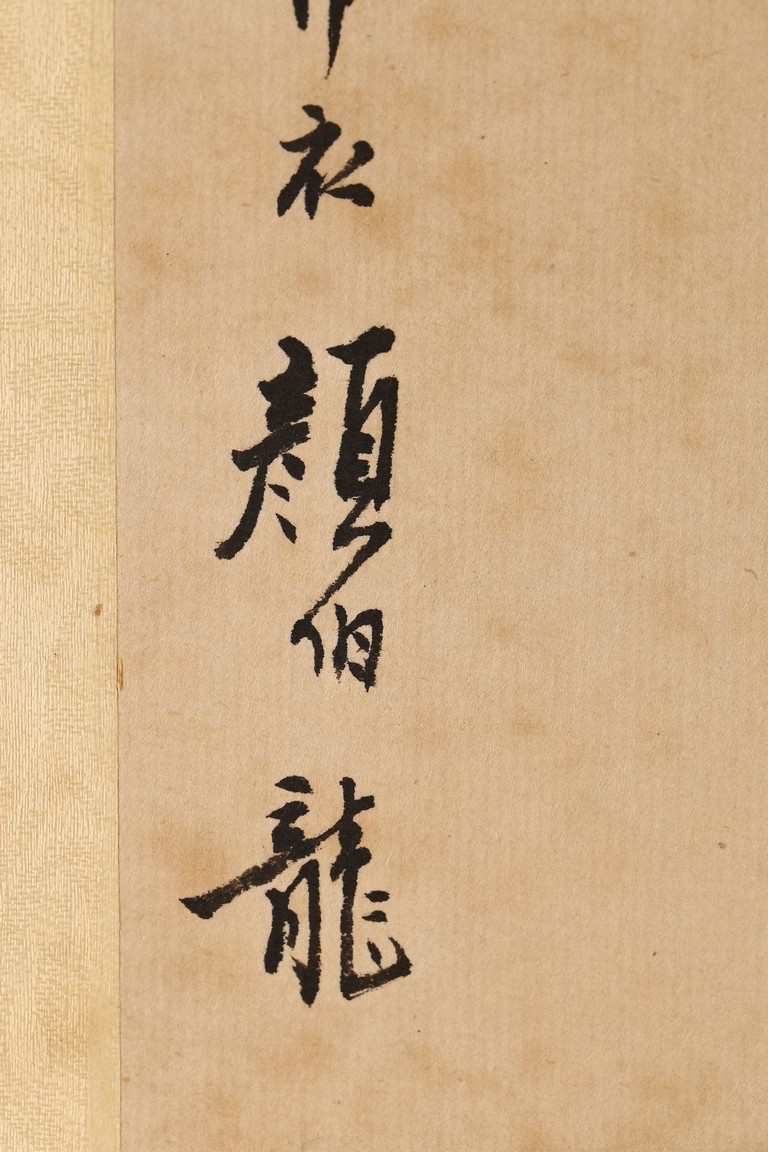 衣顏伯龍